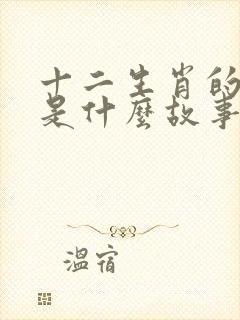 十二生肖的
是什麼故事
溫宿